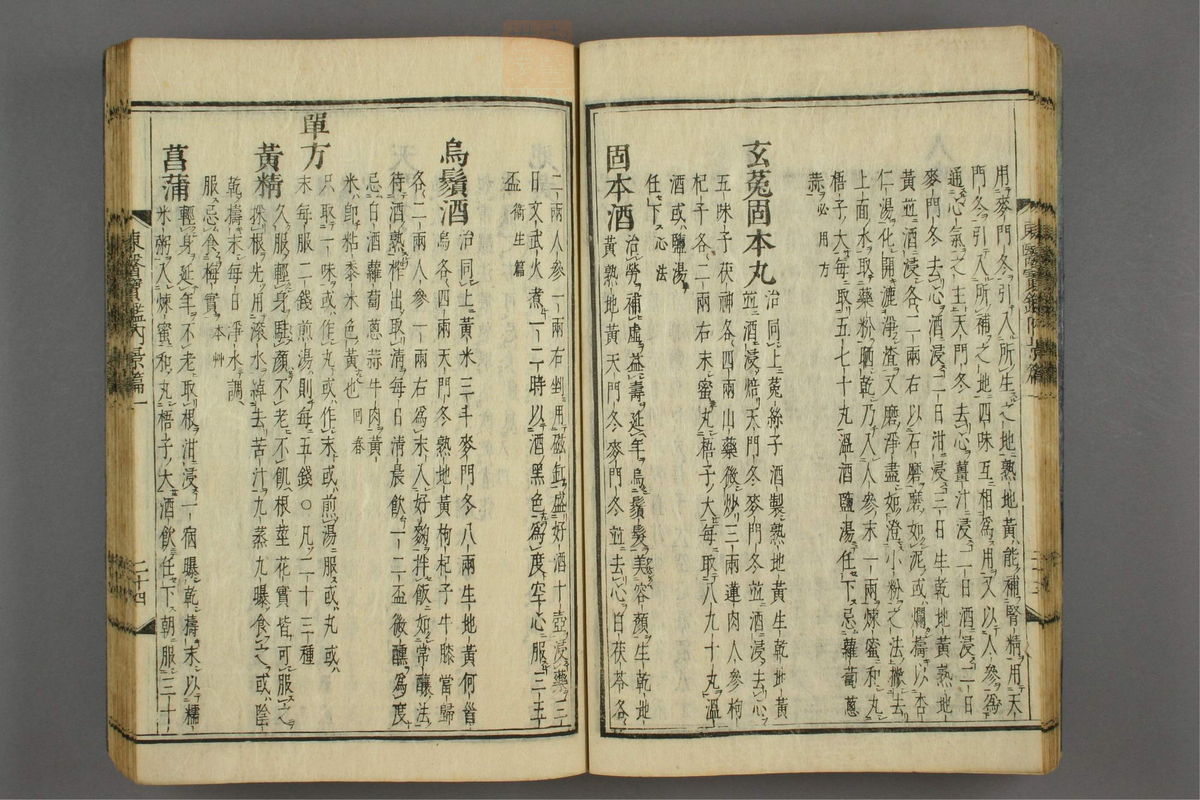 用麥門冬引入所生之地熟地黃能補腎精用天
門冬引入所補之地四味互相爲用又以人參爲
通心氣之主天門冬去心薑汁浸二日酒浸二日
麥門冬去心酒浸二日泔浸三日生乾地黃熟地
黃並酒浸各一兩右以石磨磨如泥或爛擣以杏
仁湯化開漉淨渣又磨淨盡如澄小粉之法撇去
上面水取藥粉晒乾乃入人參末一兩煉蜜和丸
梧子大每取五七十丸溫酒鹽湯任下忌蘿蔔葱
蒜必用方
玄菟固本丸治同上菟絲子酒製熟地黃生乾地黃
並酒浸焙天門冬麥門冬並酒浸去心
五味子茯神各四兩山藥微炒三兩蓮肉人參枸
杞子各二兩右末蜜丸梧子大每取八九十丸溫
酒或鹽湯
任下心法
固本酒治勞補虛益壽延年烏鬚髮美容顔生乾地
黃熟地黃天門冬麥門冬並去心白茯苓各
二兩人參一兩右剉用磁缸盛好酒十壺浸藥三
日文武火煮一二時以酒黑色爲度空心服三五
盃衛生篇
烏鬚酒治同上黃米三斗麥門冬八兩生地黃何首
烏各四兩天門冬熟地黃枸杞子牛膝當歸
各二兩人參一兩右爲末入好麴拌飯如常釀法
待酒熟榨出取清每日清晨飮一二盃微醺爲度
忌白酒蘿蔔葱蒜牛肉黃
米卽粘黍米色黃也回春
單方只取一味或作丸或作末或煎湯服或丸或
末每服二錢煎湯則每五錢〇凡二十三種
黃精久服輕身駐顔不老不飢根莖花實皆可服之
採根先用滾水綽去苦汁九蒸九曝食之或陰
乾擣末每日淨水調
服忌食梅實本艸
菖蒲輕身延年不老取根泔浸一宿曝乾擣末以糯
米粥入煉蜜和丸梧子大酒飮任下朝服三十
東醫寶鑑內景篇一
二十四